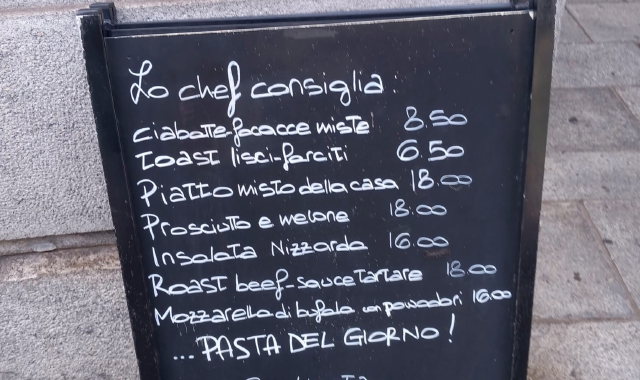 Lo chef consiglia:
ciabatte-focacce miste 8.50
TOAST lisci-farciti 6.50
Piatto misto della casa 18.00
Prosciutto e melone 18.00
Insalata Nizzarda 16.00
Roast beef-sauce Tartare 18.00
Mozzarella di bufala con pomodori 16.00
...PASTA DEL GIORNO!